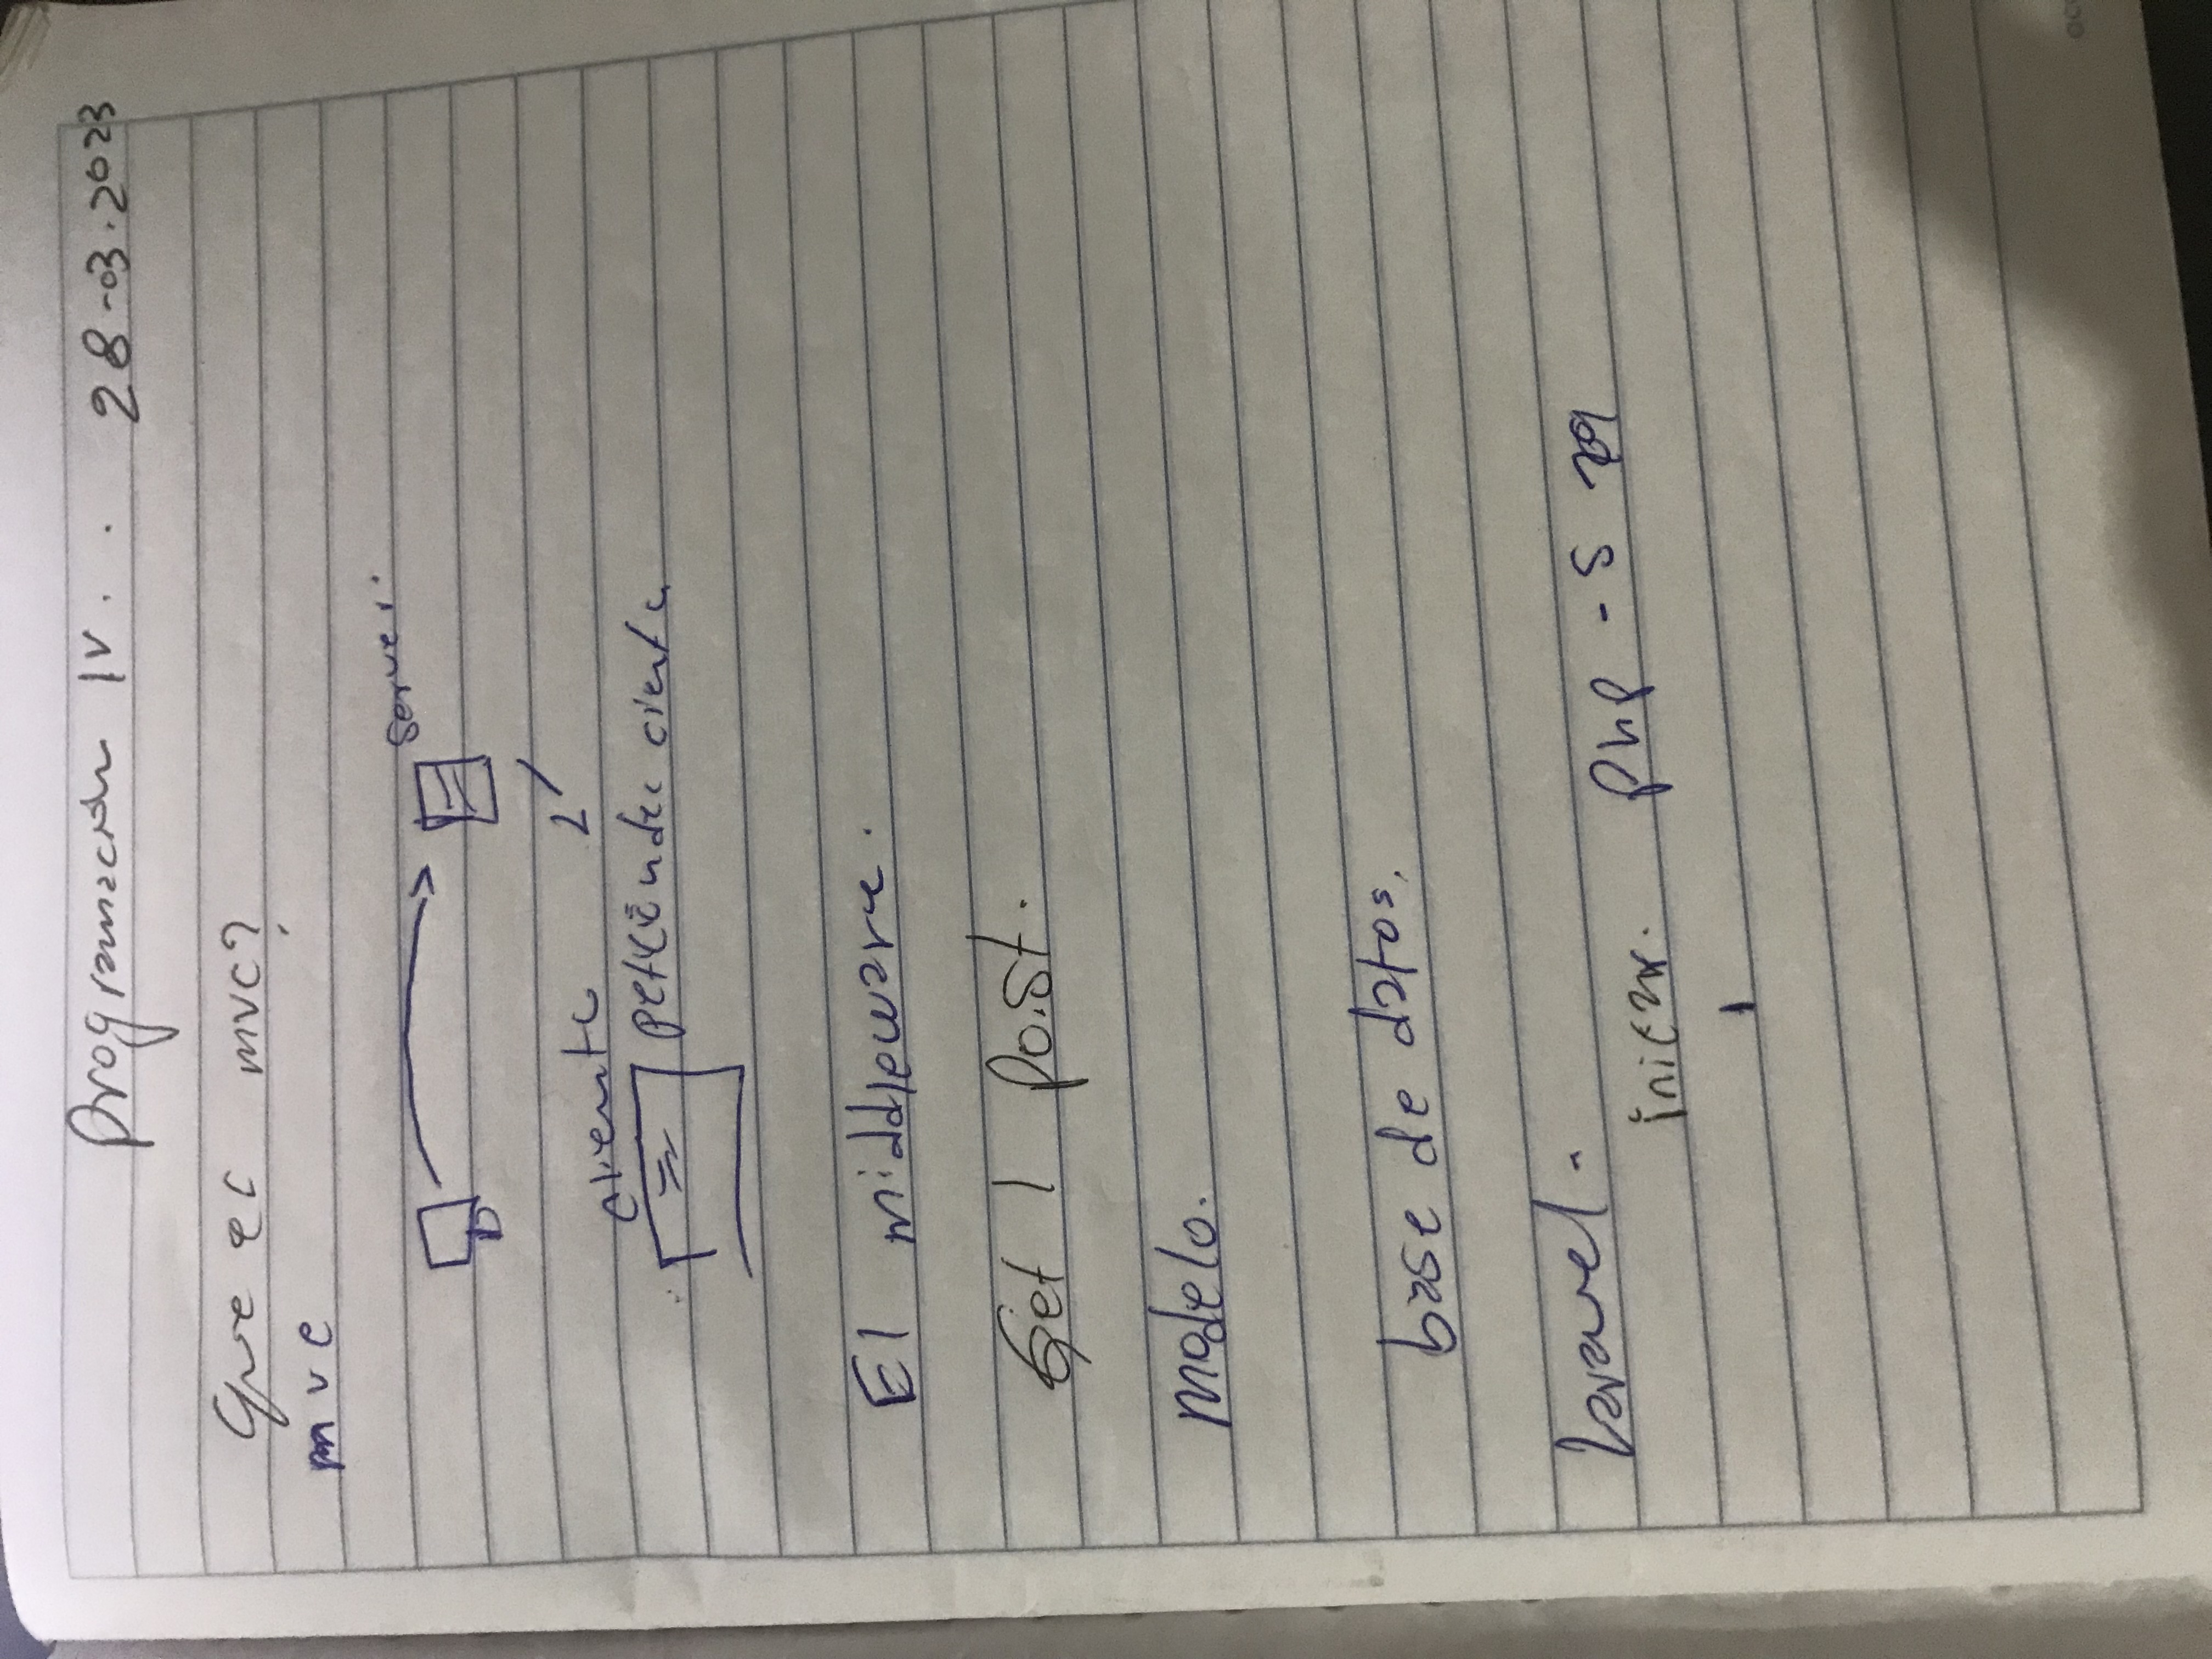 Programación IV. . 28-03.2023
Que es mvc?
mvc
server.
cliente
petición del
El middleware.
Get / Post.
modelo.
base de datos.
laravel.
iniciar. php - S